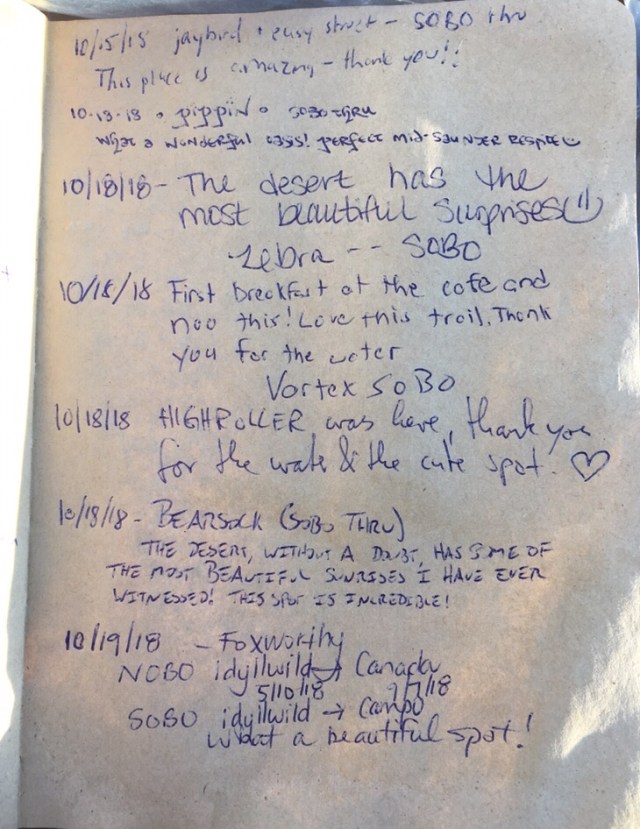 10/15/18 jaybird + easy street - SOBO thru
This place is amazing - thank you!!
10-18-18 • pippin • SOBO THRU
What a wonderful oasis! Perfect mid-saunter respite
10/18/18 - The desert has the
most beautiful surprises
Zebra -- SOBO
10/18/18 First breakfast at the cafe and
noo this! Love this trail. Thank
you for the water
Vortex SOBO
10/18/18 HIGHROLLER was here, thank you
for the water & the cute spot. ♡
10/18/18 - BEARSOCK (SOBO THRU)
THE DESERT, WITHOUT A DOUBT, HAS SOME OF
THE MOST BEAUTIFUL SUNRISES I HAVE EVER
WITNESSED! THIS SPOT IS INCREDIBLE!
10/19/18 - Foxworthy
NOBO idyllwild → Canada
5/10/18 9/7/18
SOBO idyllwild → Campo
What a beautiful spot!